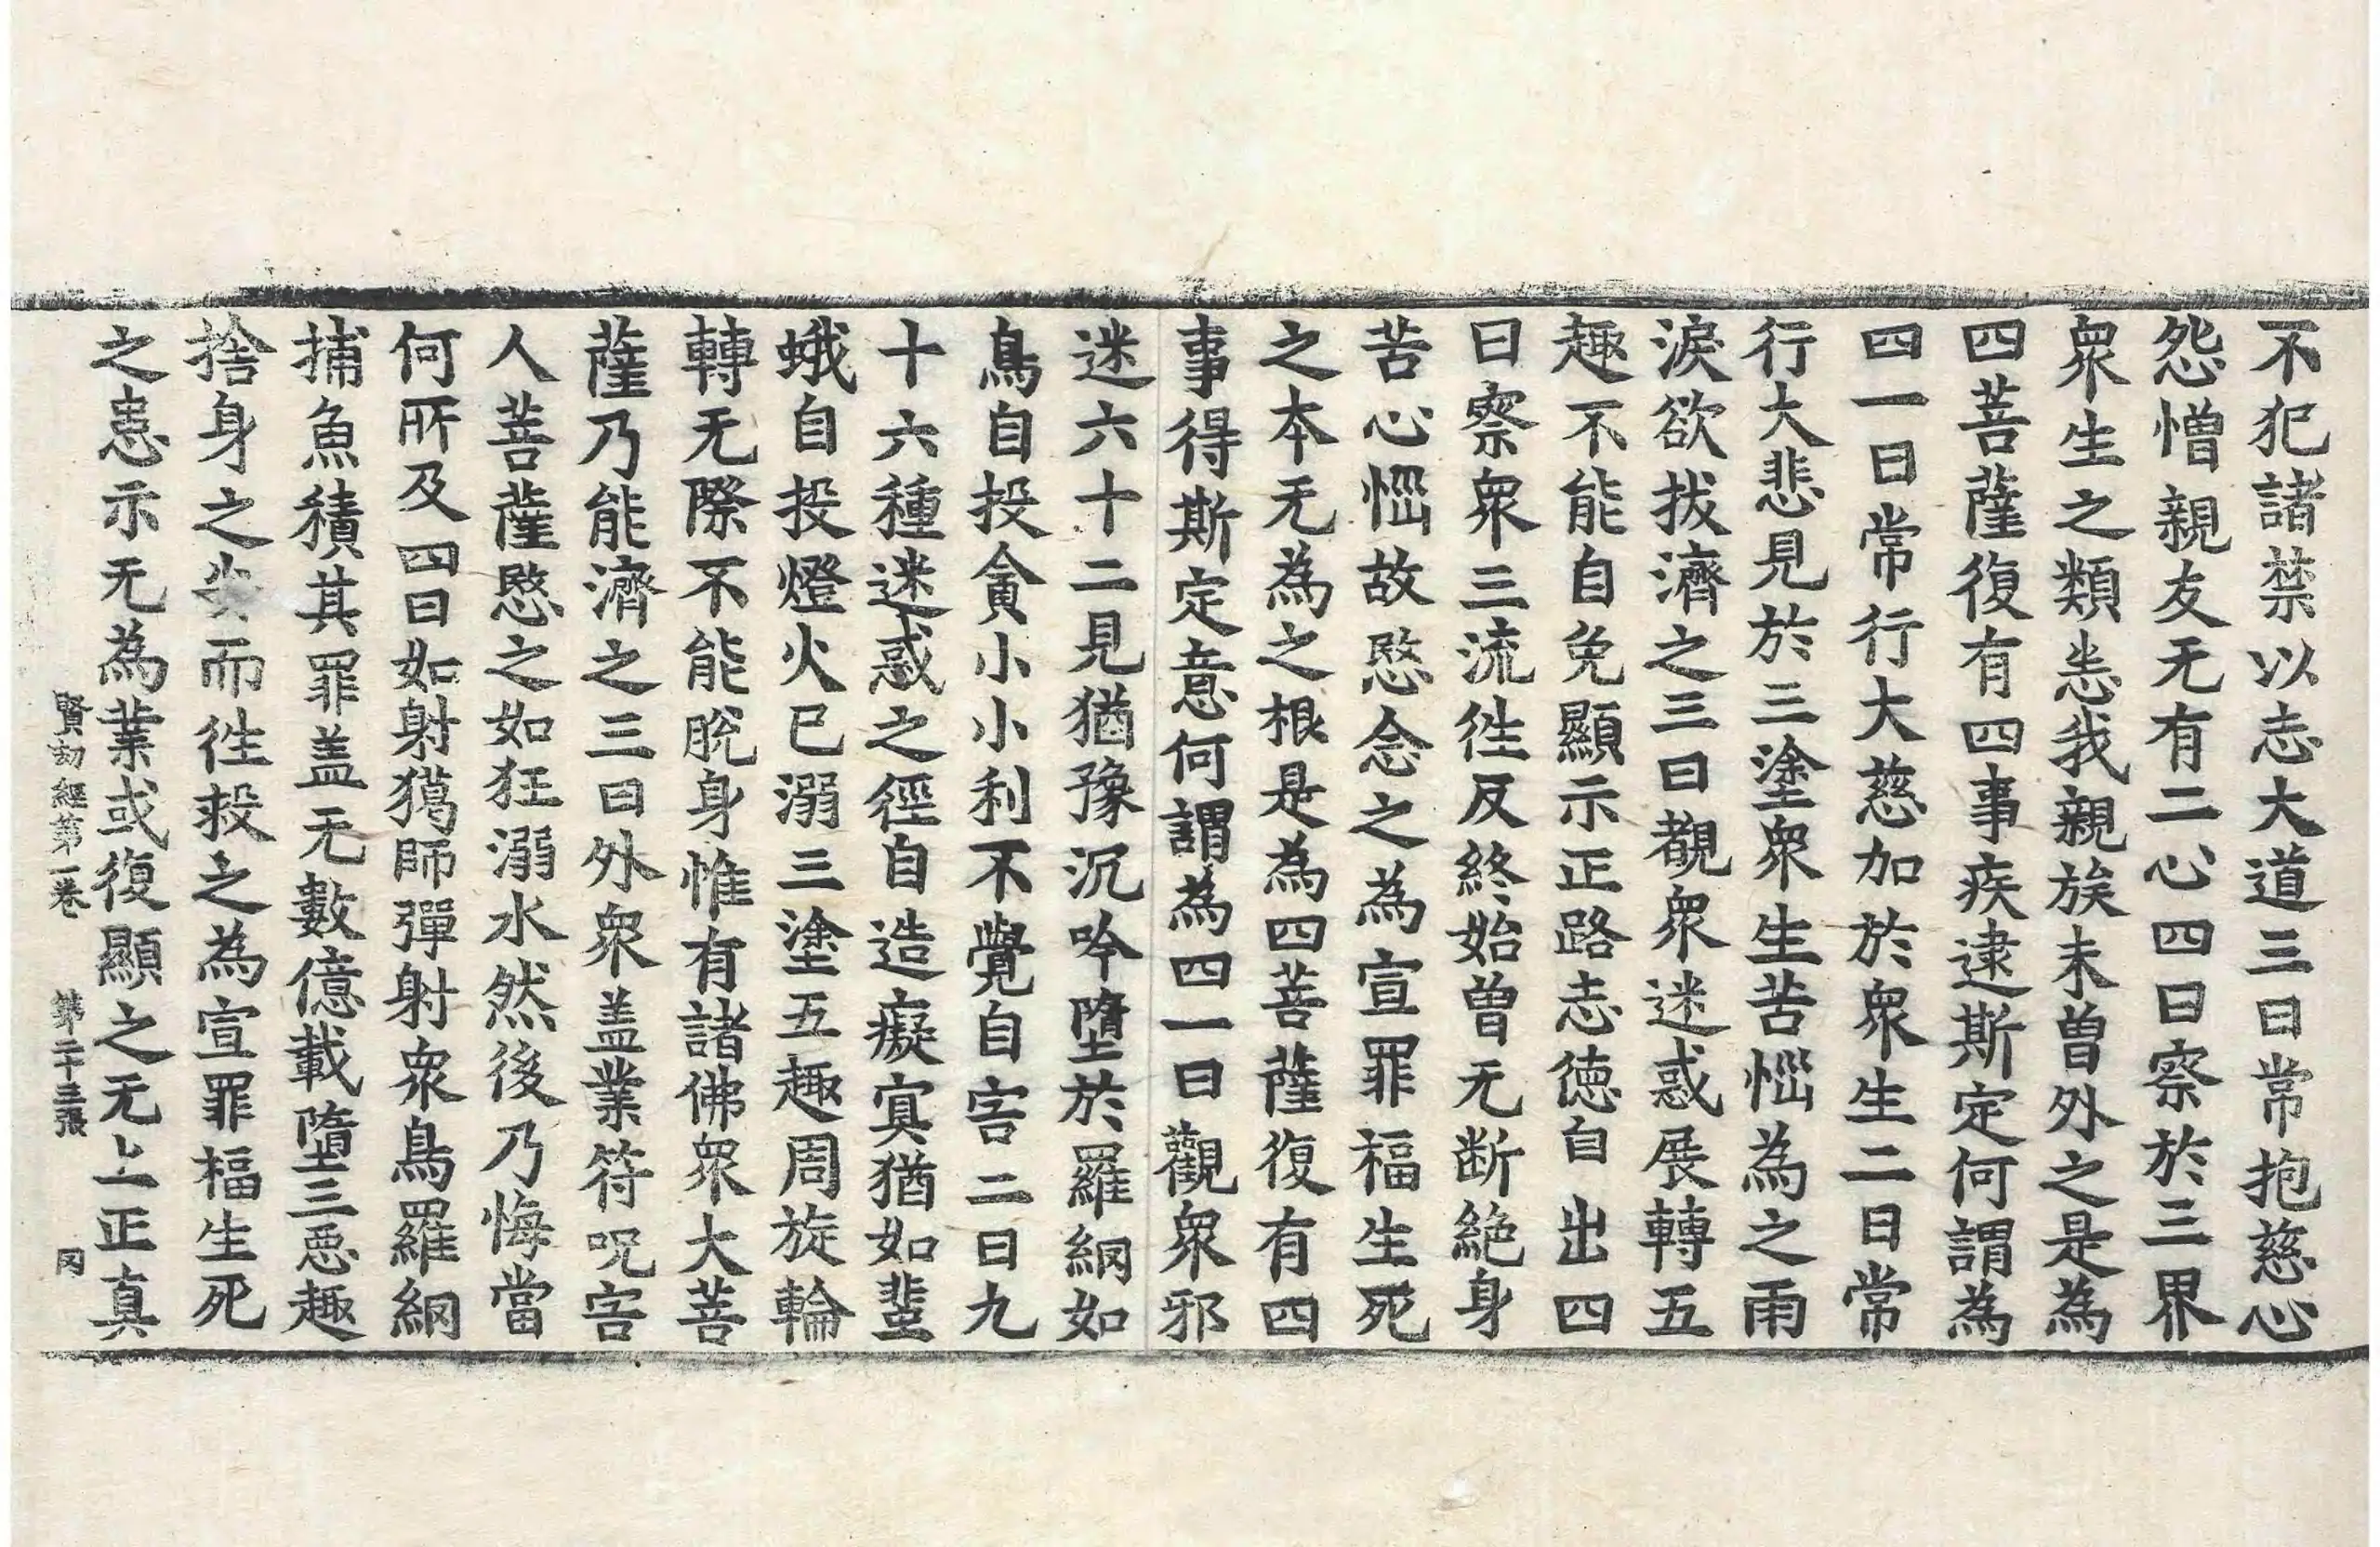 不犯諸禁以志大道三曰常抱慈心
怨憎親友无有二心四曰察於三界
衆生之類恙我親族未曽外之是為
四菩薩復有四事疾逮斯定何謂為
四一曰常行大慈加於衆生二曰常
行大悲見於三塗衆生苦惱為之雨
淚欲拔濟之三曰覩衆迷惑展轉五
趣不能自免顯示正路志徳自出四
曰察衆三流徃反終始曽无断絶身
苦心惱故愍念之為宣罪福生死
之本无為之根是為四菩薩復有四
事得斯定意何謂為四一曰觀衆邪
迷六十二見猶豫沉吟墮於羅網如
鳥自投貪小小利不覺自害二曰九
十六種迷惑之徑自造癡冥猶如蜚
蛾自投燈火已溺三塗五趣周旋輪
轉无際不能脫身惟有諸佛衆大菩
薩乃能濟之三曰外衆盖業符呪害
人菩薩愍之如狂溺水然後乃悔當
何所及四曰如射獦師彈射衆鳥羅網
捕魚積其罪盖无數億載墮三惡趣
捨身之而徃救之為宣罪福生死
之患示无為業或復顯之无上正真
賢劫經第一卷 第二十三張 冈